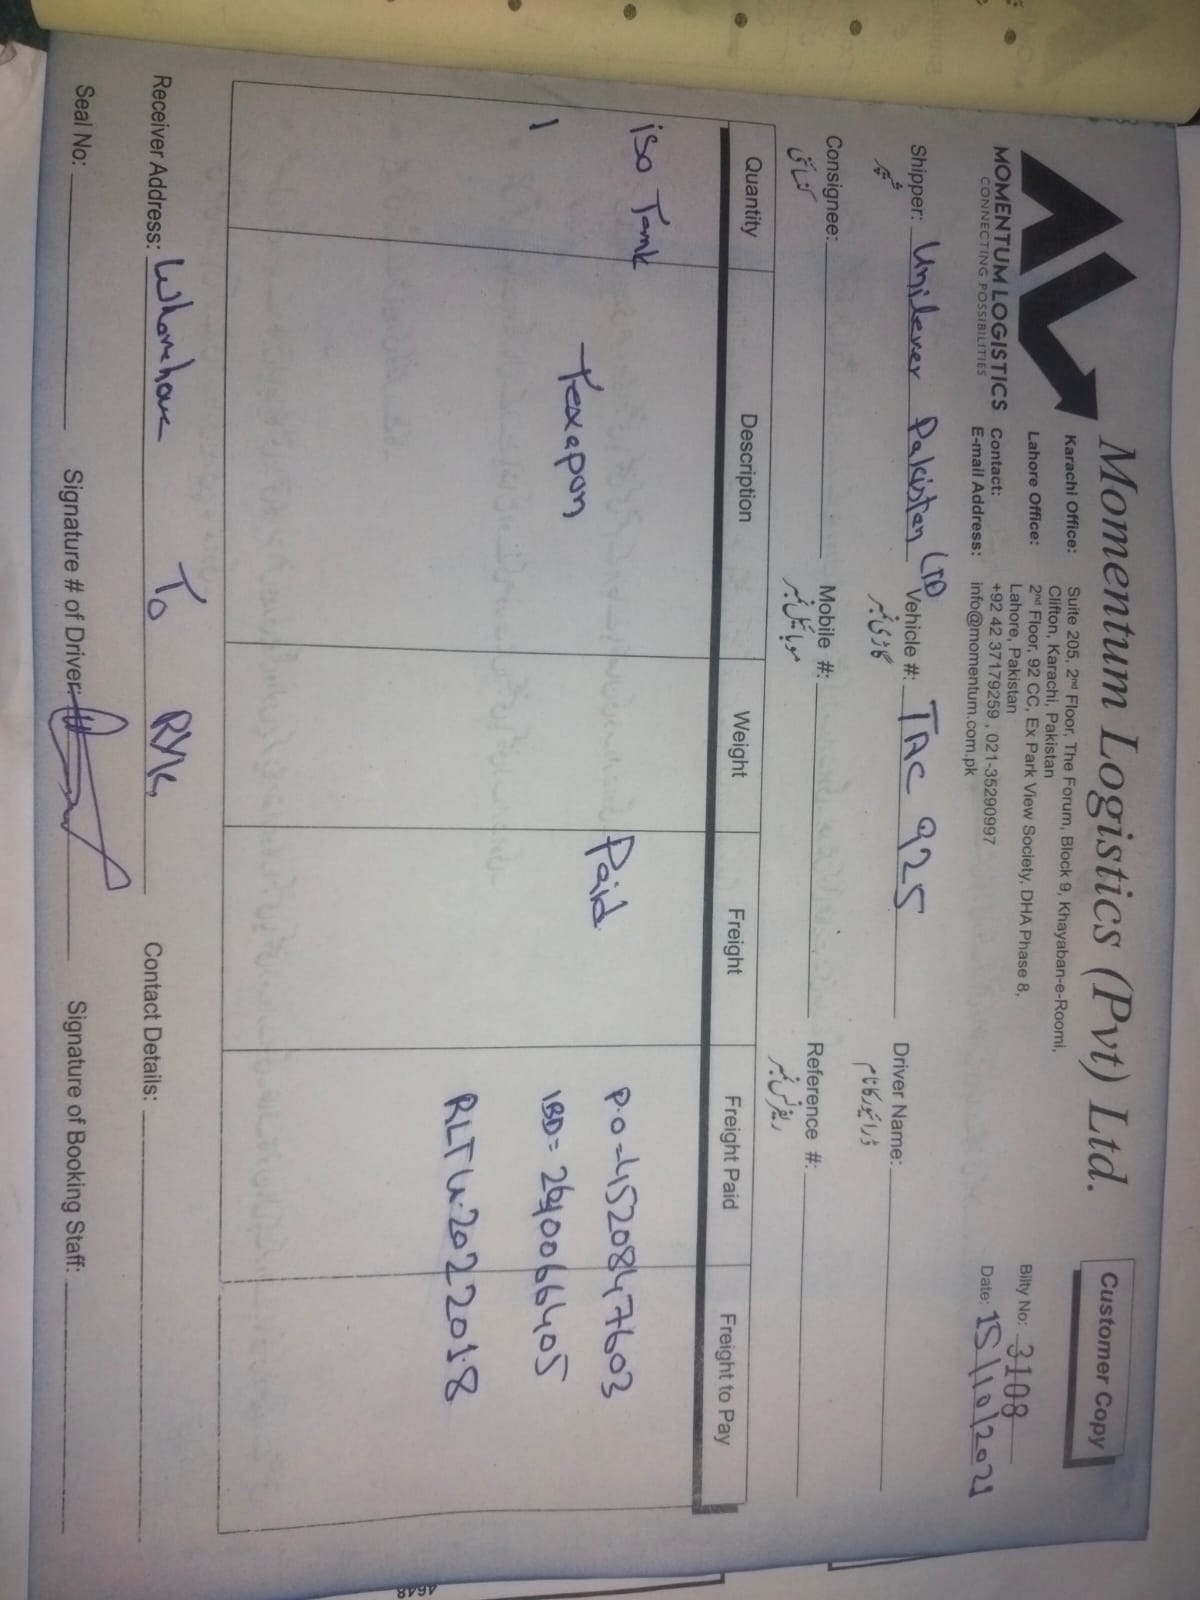 Momentum Logistics (Pvt) Ltd.
Customer Copy
MOMENTUM LOGISTICS
CONNECTING POSSIBILITIES
Karachi Office: Suite 205, 2nd Floor, The Forum, Block 9, Khayaban-e-Roomi,
Clifton, Karachi, Pakistan
Lahore Office: 2nd Floor, 92 CC, Ex Park View Society, DHA Phase 8,
Lahore, Pakistan
Contact: +92 42 37179259 , 021-35290997
E-mail Address: info@momentum.com.pk
Bilty No: 3108
Date: 15/10/2021
Shipper: Unilever Pakistan LTD Vehicle #: TAC 925 Driver Name:
شپر گاڑی نمبر ڈرائیور کا نام
Consignee: Mobile #: Reference #:
کنسائنی موبائیل نمبر ریفرنس نمبر
Quantity Description Weight Freight Freight Paid Freight to Pay
iso Tank Texapon Paid P.O=4520847603
1 IBD= 2610066405
RLTU.2022018
Receiver Address: Wharehouse To RYK Contact Details:
Seal No: Signature # of Driver: Signature of Booking Staff:
4648